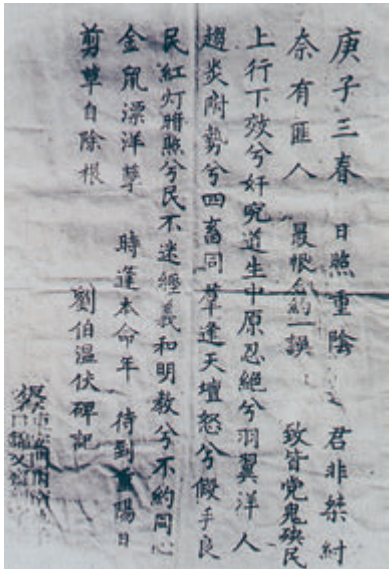 庚子三春 日照重陰 君非桀紂
奈有匪人 最恨和約一誤 致皆党鬼殃民
上行下效兮奸宄道生中原忍絕兮羽翼洋人
趨炎附勢兮四畜同羣逢天壇怒兮假手良
民紅灯照兮民不迷經義和明教兮不約同心
金鼠漂洋孽 時逢本命年 待到重陽日
剪草自除根 劉伯温伏碑記